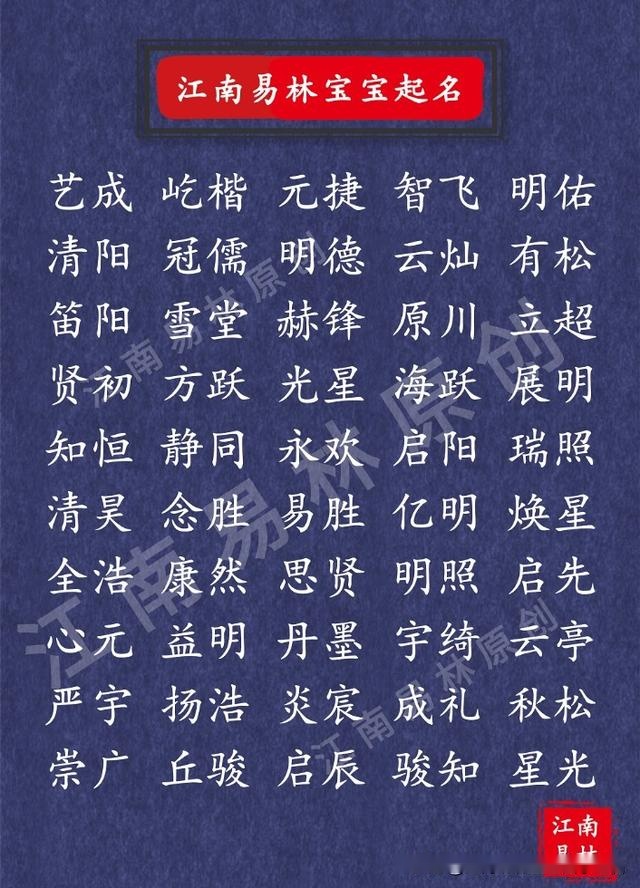 江南易林宝宝起名
艺成 屹楷 元捷 智飞 明佑
清阳 冠儒 明德 云灿 有松
笛阳 雪堂 赫锋 原川 立超
贤初 方跃 光星 海跃 展明
知恒 静同 永欢 启阳 瑞照
清昊 念胜 易胜 亿明 焕星
全浩 康然 思贤 明照 启先
心元 益明 丹墨 宇绮 云亭
严宇 扬浩 炎宸 成礼 秋松
崇广 丘骏 启辰 骏知 星光
江南易林原创
江南易林原创
江南易林原创
江南
易林